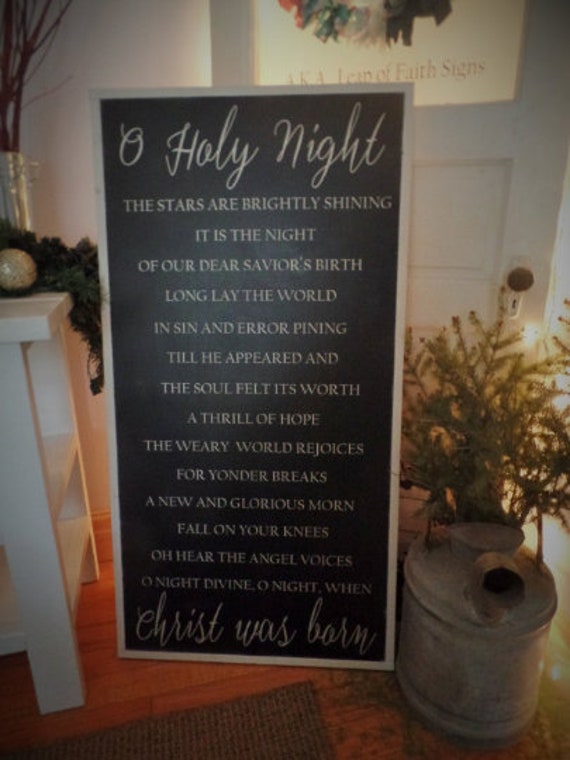 A.K.A. Leap of Faith Signs
O Holy Night
THE STARS ARE BRIGHTLY SHINING
IT IS THE NIGHT
OF OUR DEAR SAVIOR'S BIRTH
LONG LAY THE WORLD
IN SIN AND ERROR PINING
TILL HE APPEARED AND
THE SOUL FELT ITS WORTH
A THRILL OF HOPE
THE WEARY WORLD REJOICES
FOR YONDER BREAKS
A NEW AND GLORIOUS MORN
FALL ON YOUR KNEES
OH HEAR THE ANGEL VOICES
O NIGHT DIVINE, O NIGHT, WHEN
Christ was born